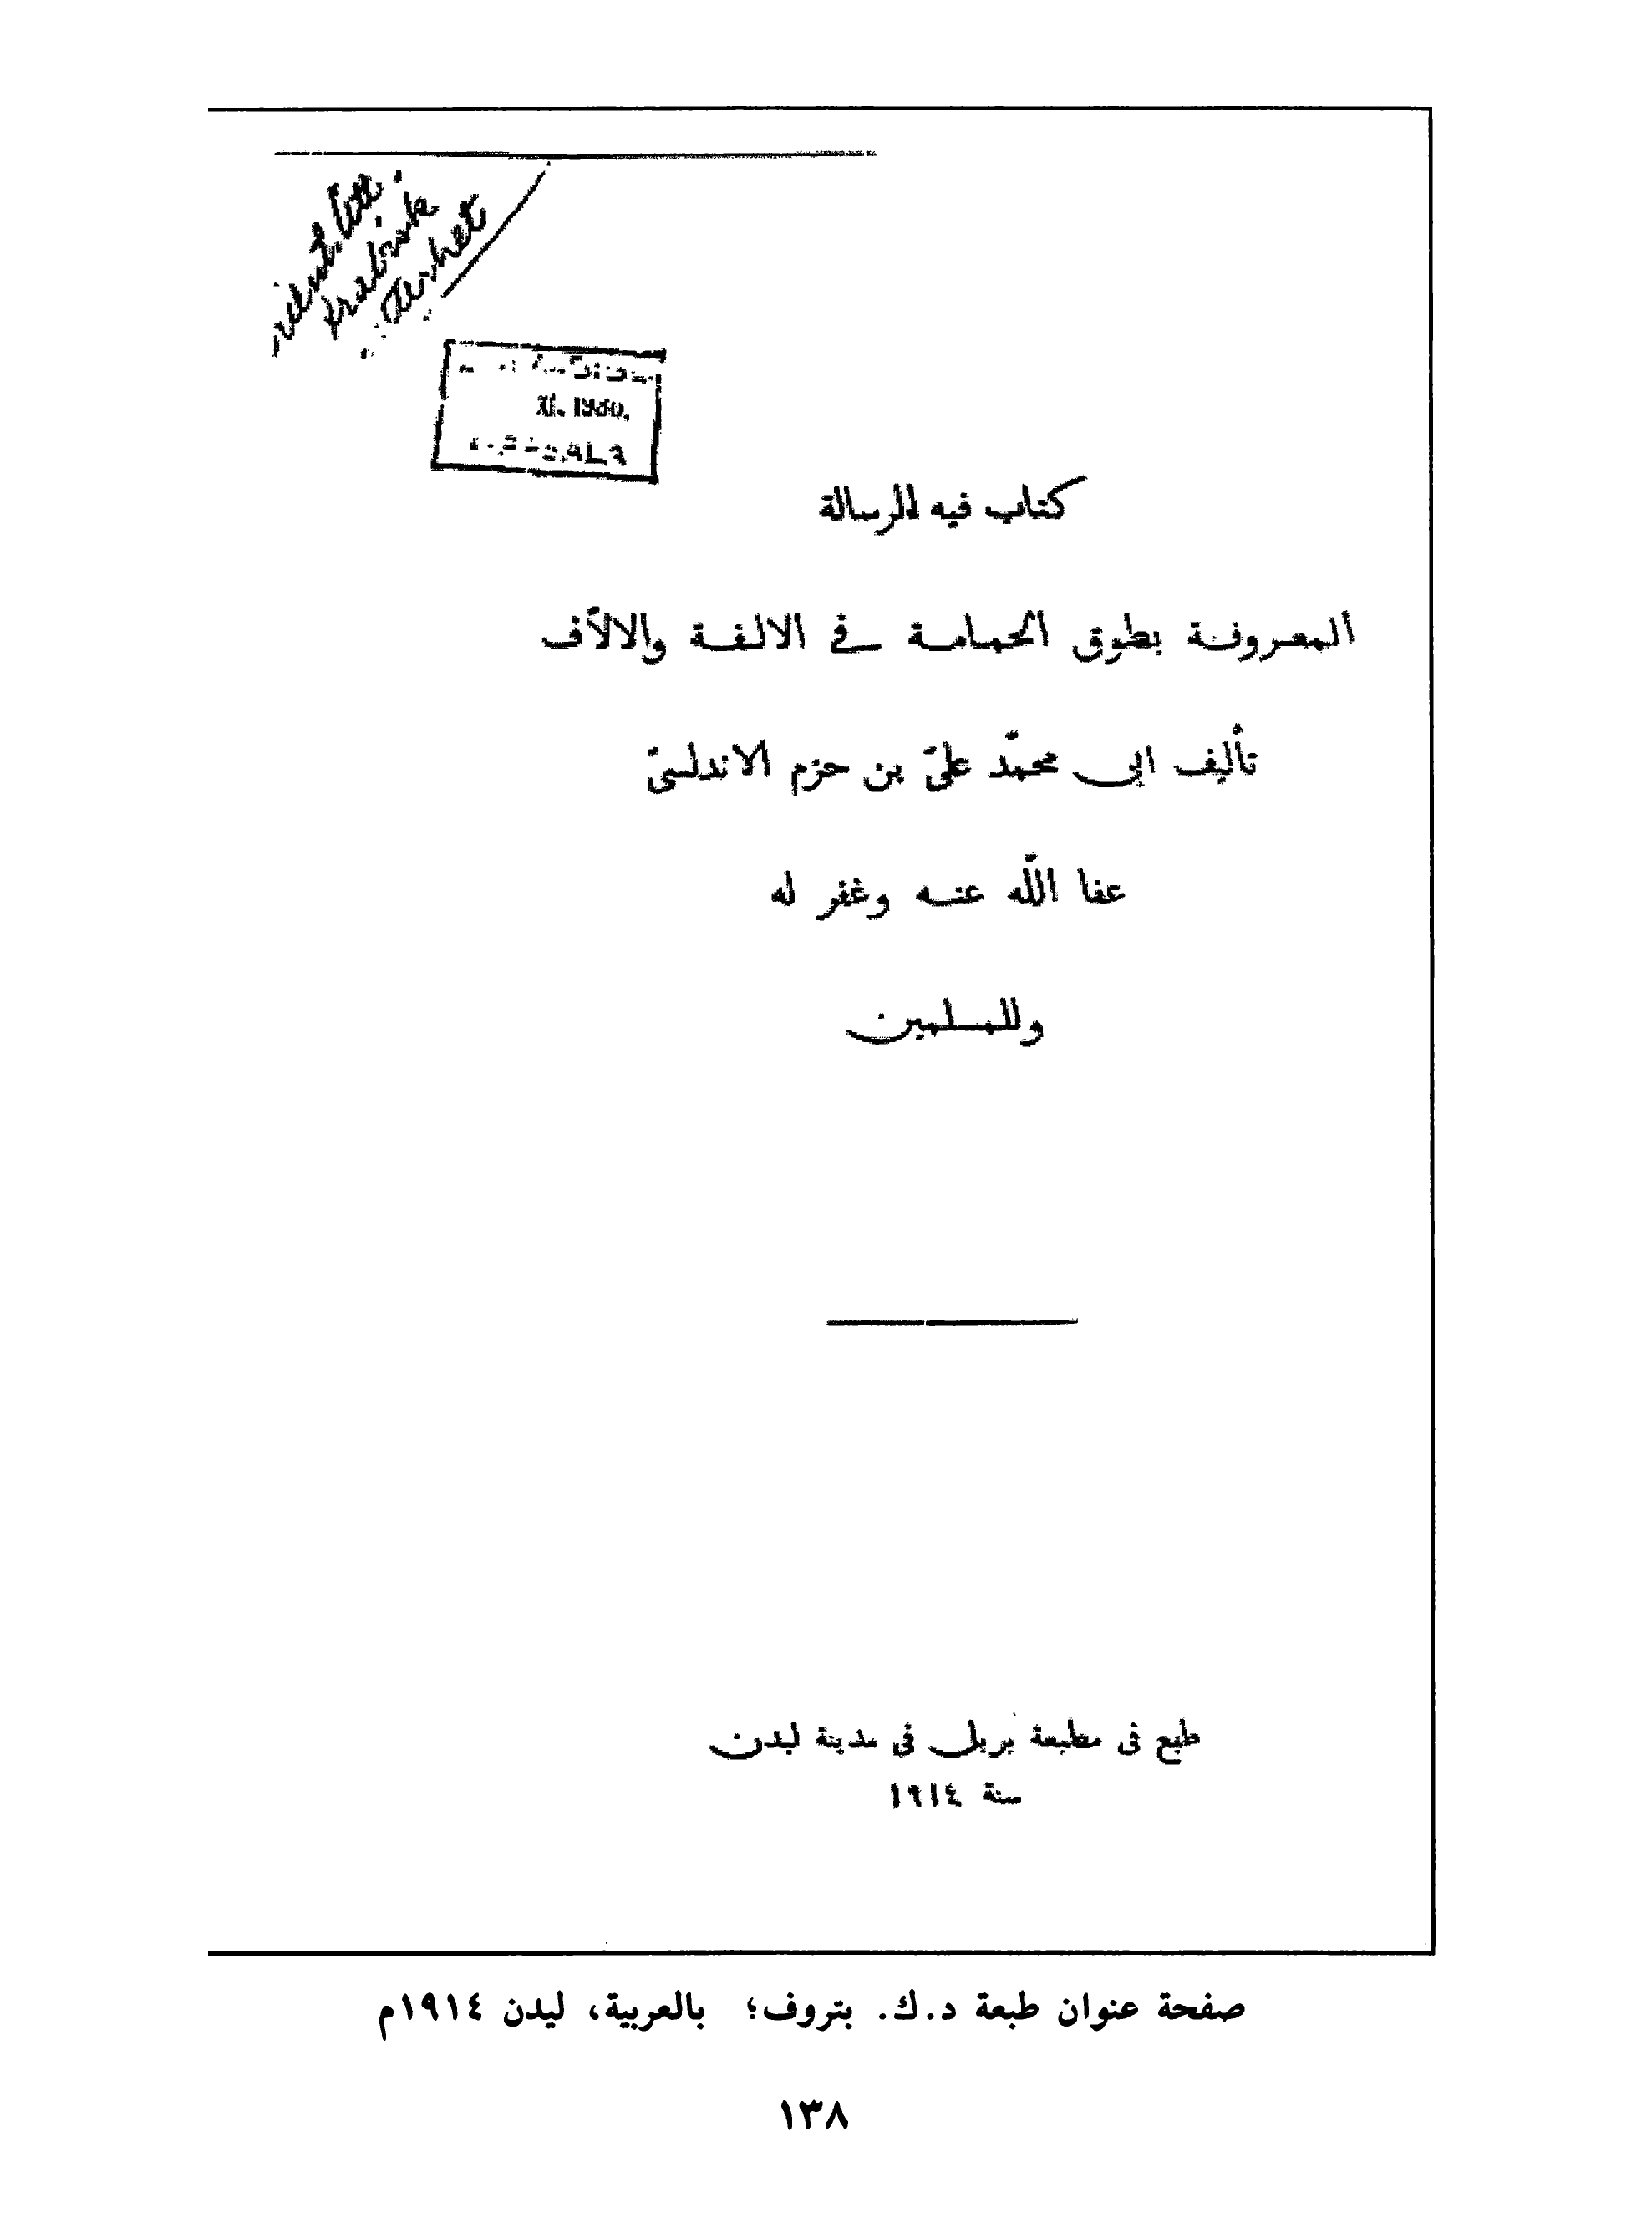 كتاب فيه الرسالة
المعروفة بطوق الحمامة في الالفة والالّاف
تأليف ابى محمّد علىّ بن حزم الاندلسىّ
عفا اللّه عنه وغفر له
وللمسلمين
طبع فى مطبعة بريل فى مدينة ليدن
سنة ١٩١٤
صفحة عنوان طبعة د.ك. بتروف؛ بالعربية، ليدن ١٩١٤م
١٣٨